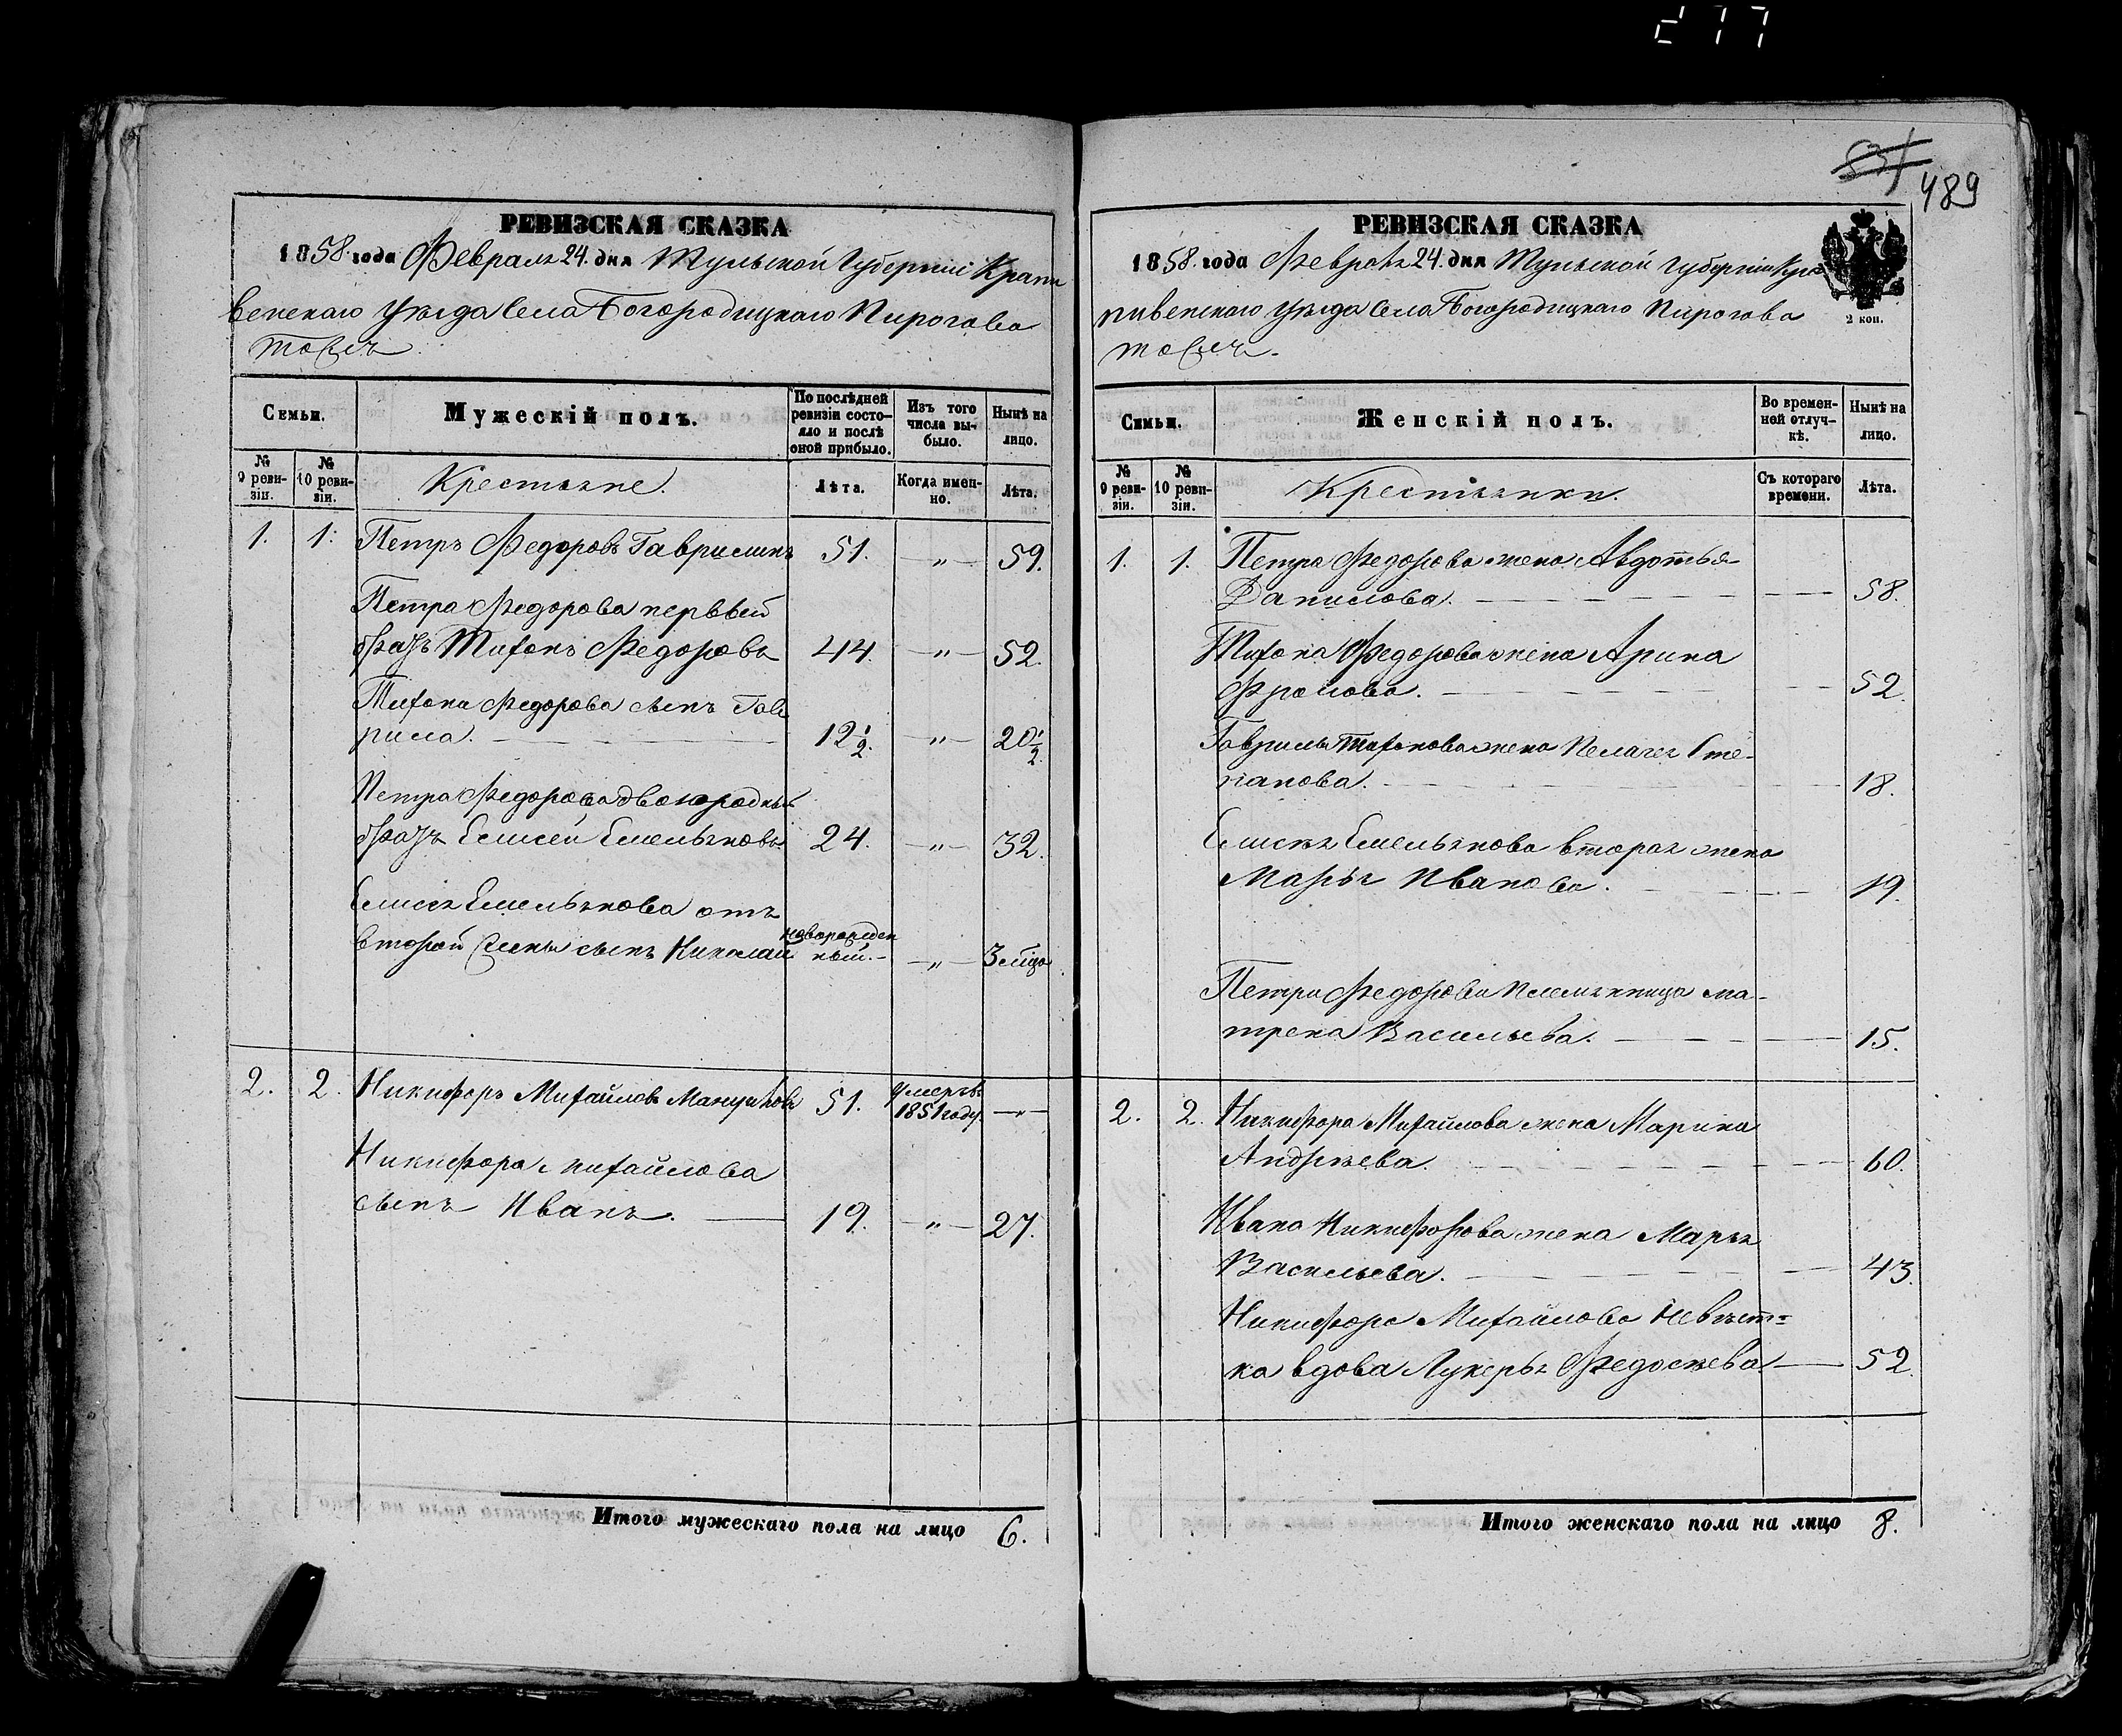 277
РЕВИЗСКАЯ СКАЗКА
1858. года Февраля 24. дня Тульской Губерніи Крапи
венскаго Уѣзда Села Богородицкаго Пирогова
тожъ.
Семьи.
Мужескій полъ.
По послѣдней ревизіи состо-
яло и послѣ
оной прибыло.
Изъ того
числа вы-
было.
Нынѣ на
лицо.
№
9 реви-
зіи.
№
10 реви-
зіи.
Крестьяне.
Лѣта.
Когда имен-
но.
Лѣта.
1. 1. Петръ Федоровъ Гаврилинъ 51. — „ — 59.
Петра Федорова первый
братъ Тихонъ Федоровъ 44. — „ — 52.
Тихона Федорова сынъ Гав
рила. 12 1/2. — „ — 20 1/2.
Петра Федорова двоюродный
братъ Елисей Емельяновъ 24. — „ — 32.
Елисея Емельянова отъ
второй жены сынъ Николай новорожден
ный. — „ — 3 мѣца
2. 2. Никифоръ Михайловъ 51. Умеръ въ
1851 году. — „ —
Никифора Михайлова
сынъ Иванъ. 19. — „ — 27.
Итого мужескаго пола на лицо 6.
489
РЕВИЗСКАЯ СКАЗКА
1858. года Февраля 24. дня Тульской Губерніи Кра
пивенскаго Уѣзда Села Богородицкаго Пирогова
тожъ.
2 коп.
Семьи.
Женскій полъ.
Во времен-
ной отлуч-
кѣ.
Нынѣ на
лицо.
№
9 реви-
зіи.
№
10 реви-
зіи.
Крестьянки.
Съ котораго
времени.
Лѣта.
1. 1. Петра Федорова жена Авдотья
Данилова. 58.
Тихона Федорова жена Арина
Фролова. 52.
Гаврилы Тихонова жена Пелагея Сте-
панова. 18.
Елисея Емельянова вторая жена
Марья Иванова. 19.
Петра Федорова племянница Ма-
трена Васильева. 15.
2. 2. Никифора Михайлова жена Марина
Андрѣева. 60.
Ивана Никифорова жена Марья
Васильева. 43.
Никифора Михайлова невѣст=
ка вдова Лукерья Федосѣева 52.
Итого женскаго пола на лицо 8.